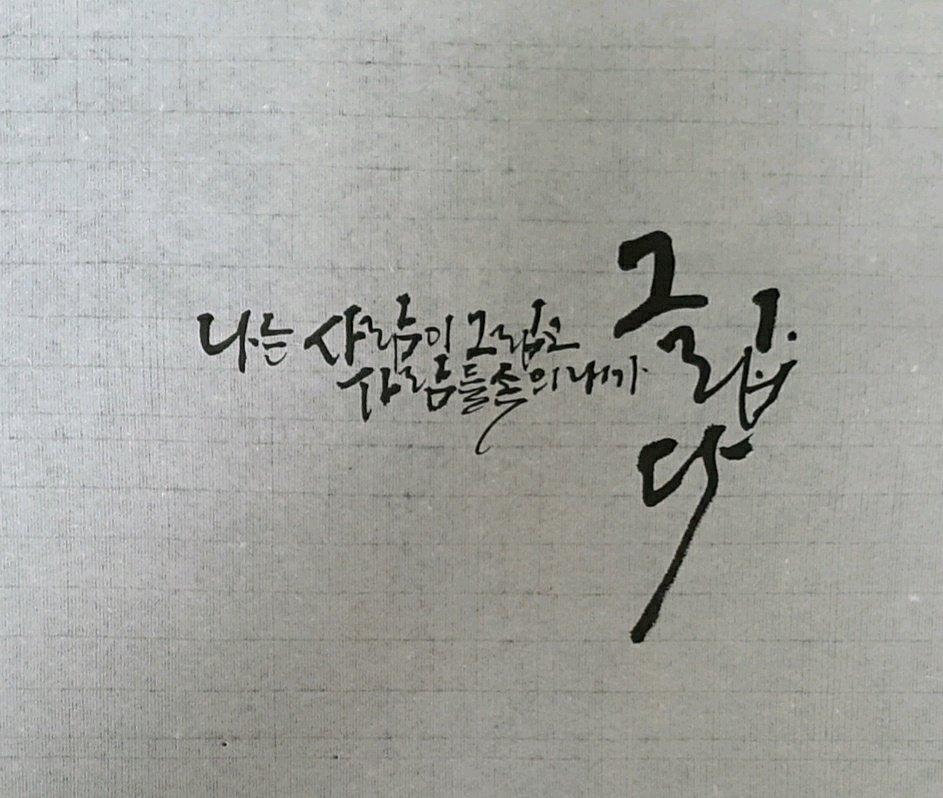 나는 사람이 그립고
사람들 속의 내가
그립
다